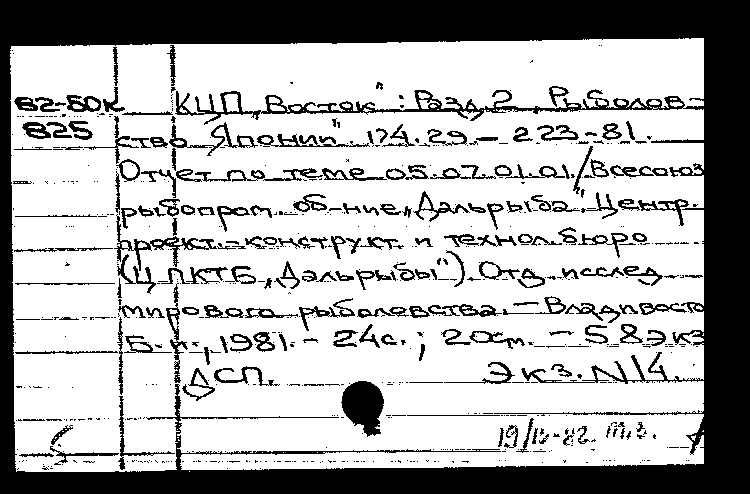 82-50к КЦП „Восток“: Разд. 2 „Рыболов-
825 ство Японии“. 174.29 – 223-81.
Отчет по теме 05.07.01.01./Всесоюз
рыбопром. об-ние „Дальрыба“. Центр.
проект.-конструкт. и технол. бюро
(ЦПКТБ „Дальрыбы“). Отд. исслед
мирового рыболовства. – Владивосто
Б.и., 1981. – 24с.; 20см. – 58экз
ДСП. Экз. N14.
82. т.з.